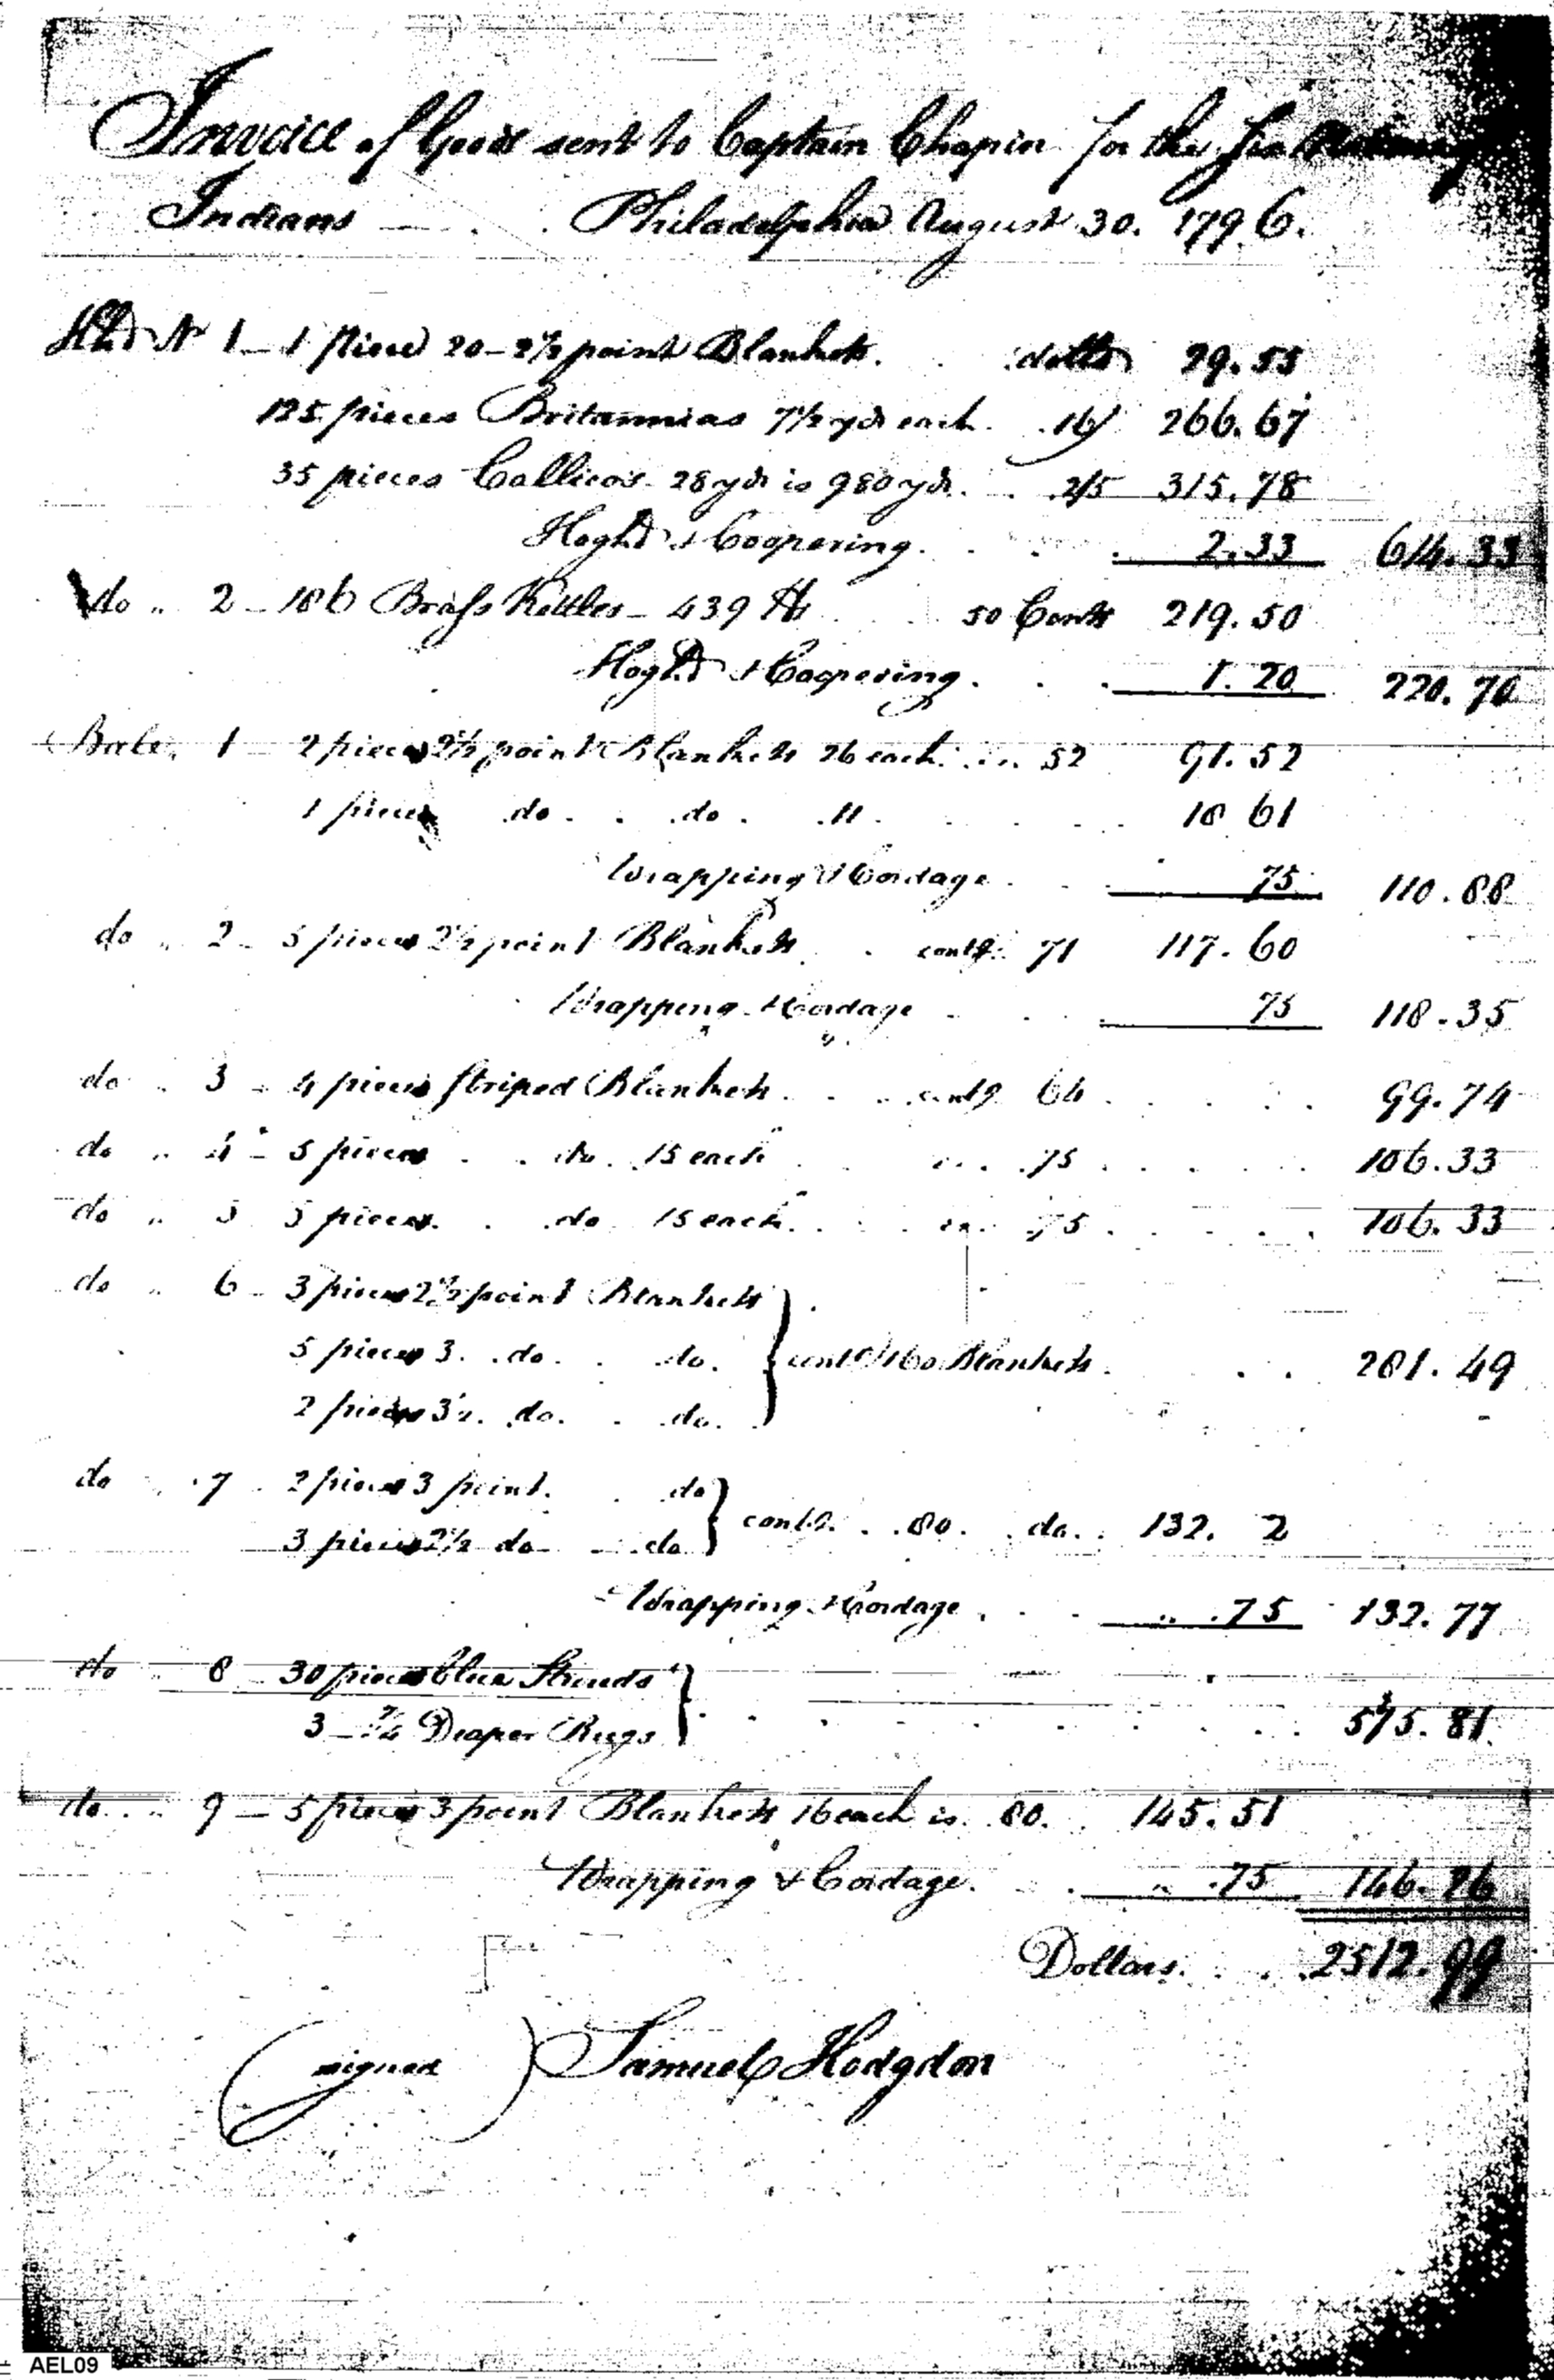 Invoice of Goods sent to Captain Chapin for the Six Nations
Indians — . . Philadelphia August 30. 1796.
Hhd No 1 — 1 piece 20 - 2½ point Blankets . . dolls 29.55
125 pieces Britannias 7½ yds each . . 16/ 266.67
35 pieces Callicos 28 yds is 980 yds . . 2/5 315.78
Hoghd & Coopering . . . 2.33 614.33
do " 2 — 186 Brass Kettles — 439 lbs . . 50 Cents 219.50
Hoghd & Coopering . . . 1.20 220.70
Bale 1 — 2 pieces 2½ point Blankets 26 each . . . 52 91.52
1 piece do . . do . 11 . . . . 18 61
Wrapping & Cordage . . . 75 110.88
do " 2 — 5 pieces 2½ point Blankets . contg. 71 117.60
Wrapping & Cordage . . . 75 118.35
do " 3 — 4 pieces striped Blankets . . . contg 64 . . . . 99.74
do " 4 — 5 pieces . . do . 15 each . . . 75 . . . . 106.33
do " 5 5 pieces . . do 15 each . . . 75 . . . . 106.33
do " 6 — 3 pieces 2½ point Blankets
5 pieces 3 . do . . do . } contg 160 Blankets . . . 281.49
2 pieces 3½ . do . . do .
do " 7 — 2 pieces 3 point . . do
3 pieces 2½ do — do } contg . . 80 . . do . . 132. 2
Wrapping & Cordage . . . .75 132.77
do " 8 — 30 pieces blue Strouds
3 — 7/4 Diaper Rugs } . . . . . . 575.81
do . " 9 — 5 pieces 3 point Blankets 16 each is . 80 . . 145.51
Wrapping & Cordage . . . " .75 146.26
Dollars . . . 2512.99
(signed) Samuel Hodgdon
AEL09